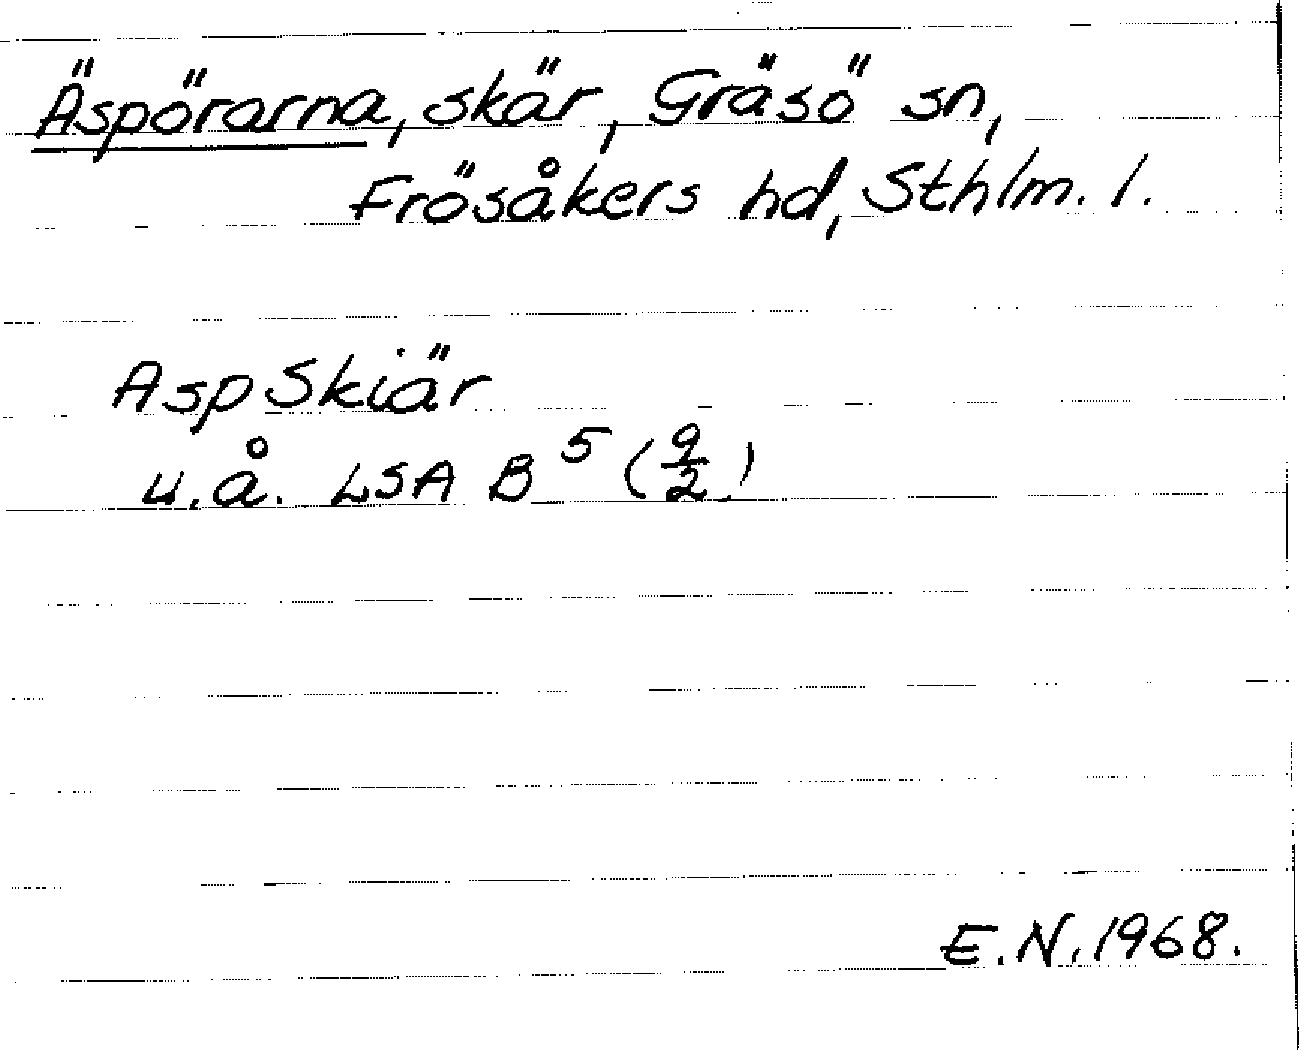 Äspörarna, skär, Gräsö sn,
Frösåkers hd, Sthlm. l.
AspSkiär
u.å. LSA B⁵ (9/2)
E.N. 1968.